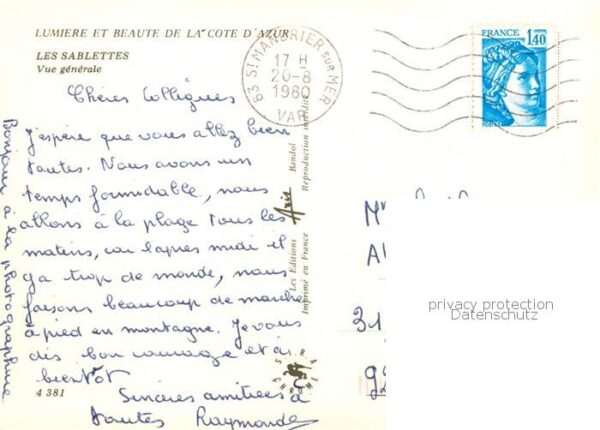 LUMIERE ET BEAUTE DE LA COTE D'AZUR
LES SABLETTES
Vue générale
83 ST MANDRIER SUR MER
17 H
20-8
1980
VAR
FRANCE
1,40
Chères Collègues
J'espère que vous allez bien
toutes. Nous avons un
temps formidable, nous
allons à la plage tous les
matins, car l'après midi il
y a trop de monde, nous
faisons beaucoup de marche
à pied en montagne. Je vous
dis bon courage et à
bientôt
Sincères amitiées à
toutes Raymonde
Bonjour à la photographine
Les Editions Aris Bandol
Imprimé en France Reproduction interdite
4 381
31
92
privacy protection
Datenschutz